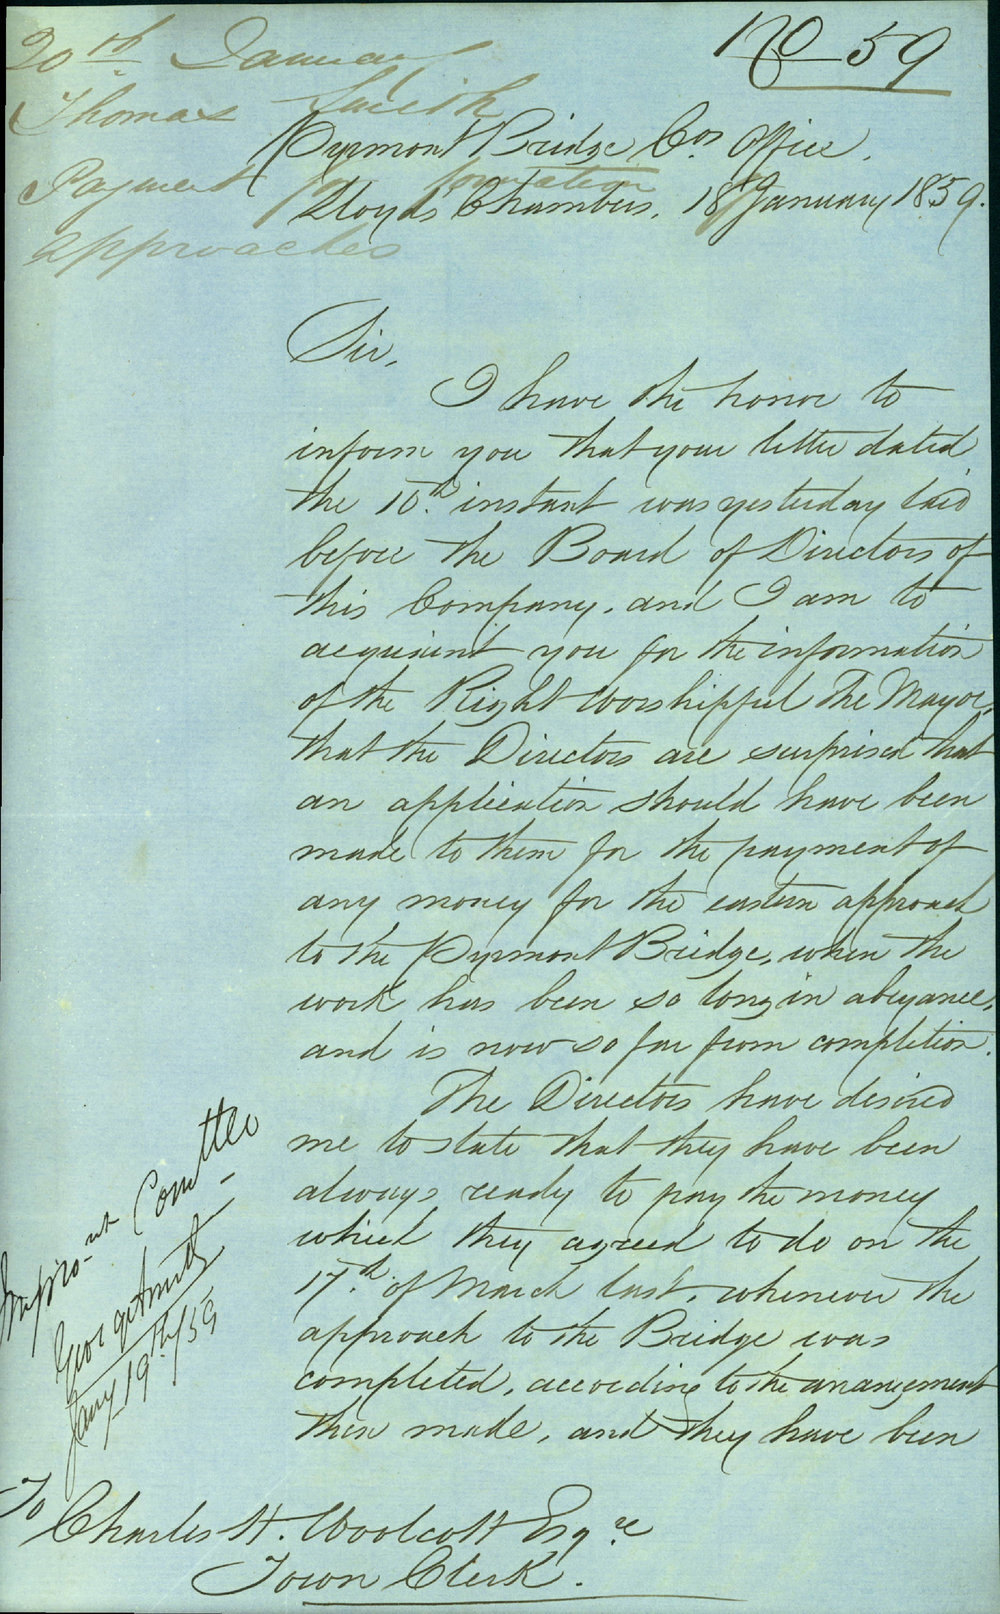 No 59
20th January
Thomas Smith
Payment for formation
approaches
Pyrmont Bridge Cos Office.
Lloyds Chambers, 18 January 1859.
Sir,
I have the honor to
inform you that your letter dated
the 10th. instant was yesterday laid
before the Board of Directors of
this Company, and I am to
acquaint you for the information
of the Right Worshipful The Mayor,
that the Directors are surprised that
an application should have been
made to them for the payment of
any money for the eastern approach
to the Pyrmont Bridge, when the
work has been so long in abeyance,
and is now so far from completion.
The Directors have desired
me to state that they have been
always ready to pay the money
which they agreed to do on the
17th. of March last, whenever the
approach to the Bridge was
completed, according to the arrangement
then made, and they have been
Improvnt Comttee
George Smith
Jany 19th/59
To
Charles H. Woolcott Esqre
Town Clerk.